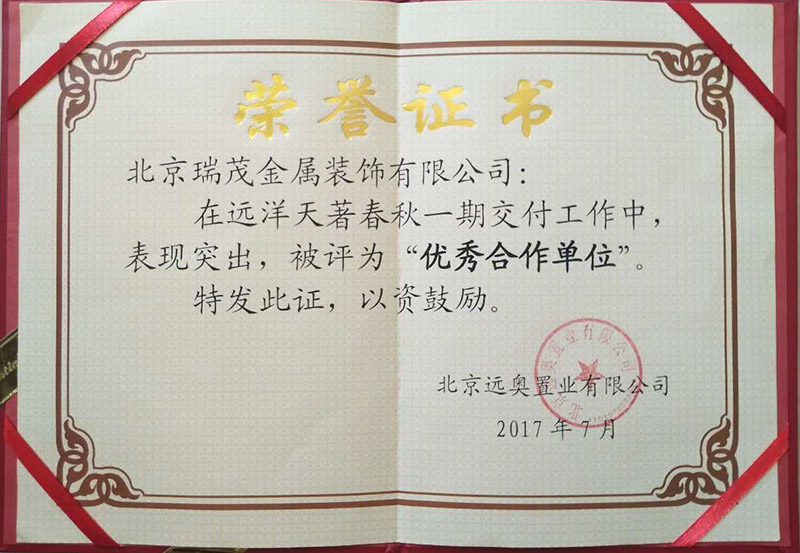 荣誉证书
北京瑞茂金属装饰有限公司：
在远洋天著春秋一期交付工作中，
表现突出，被评为“优秀合作单位”。
特发此证，以资鼓励。
北京远奥置业有限公司
2017年7月